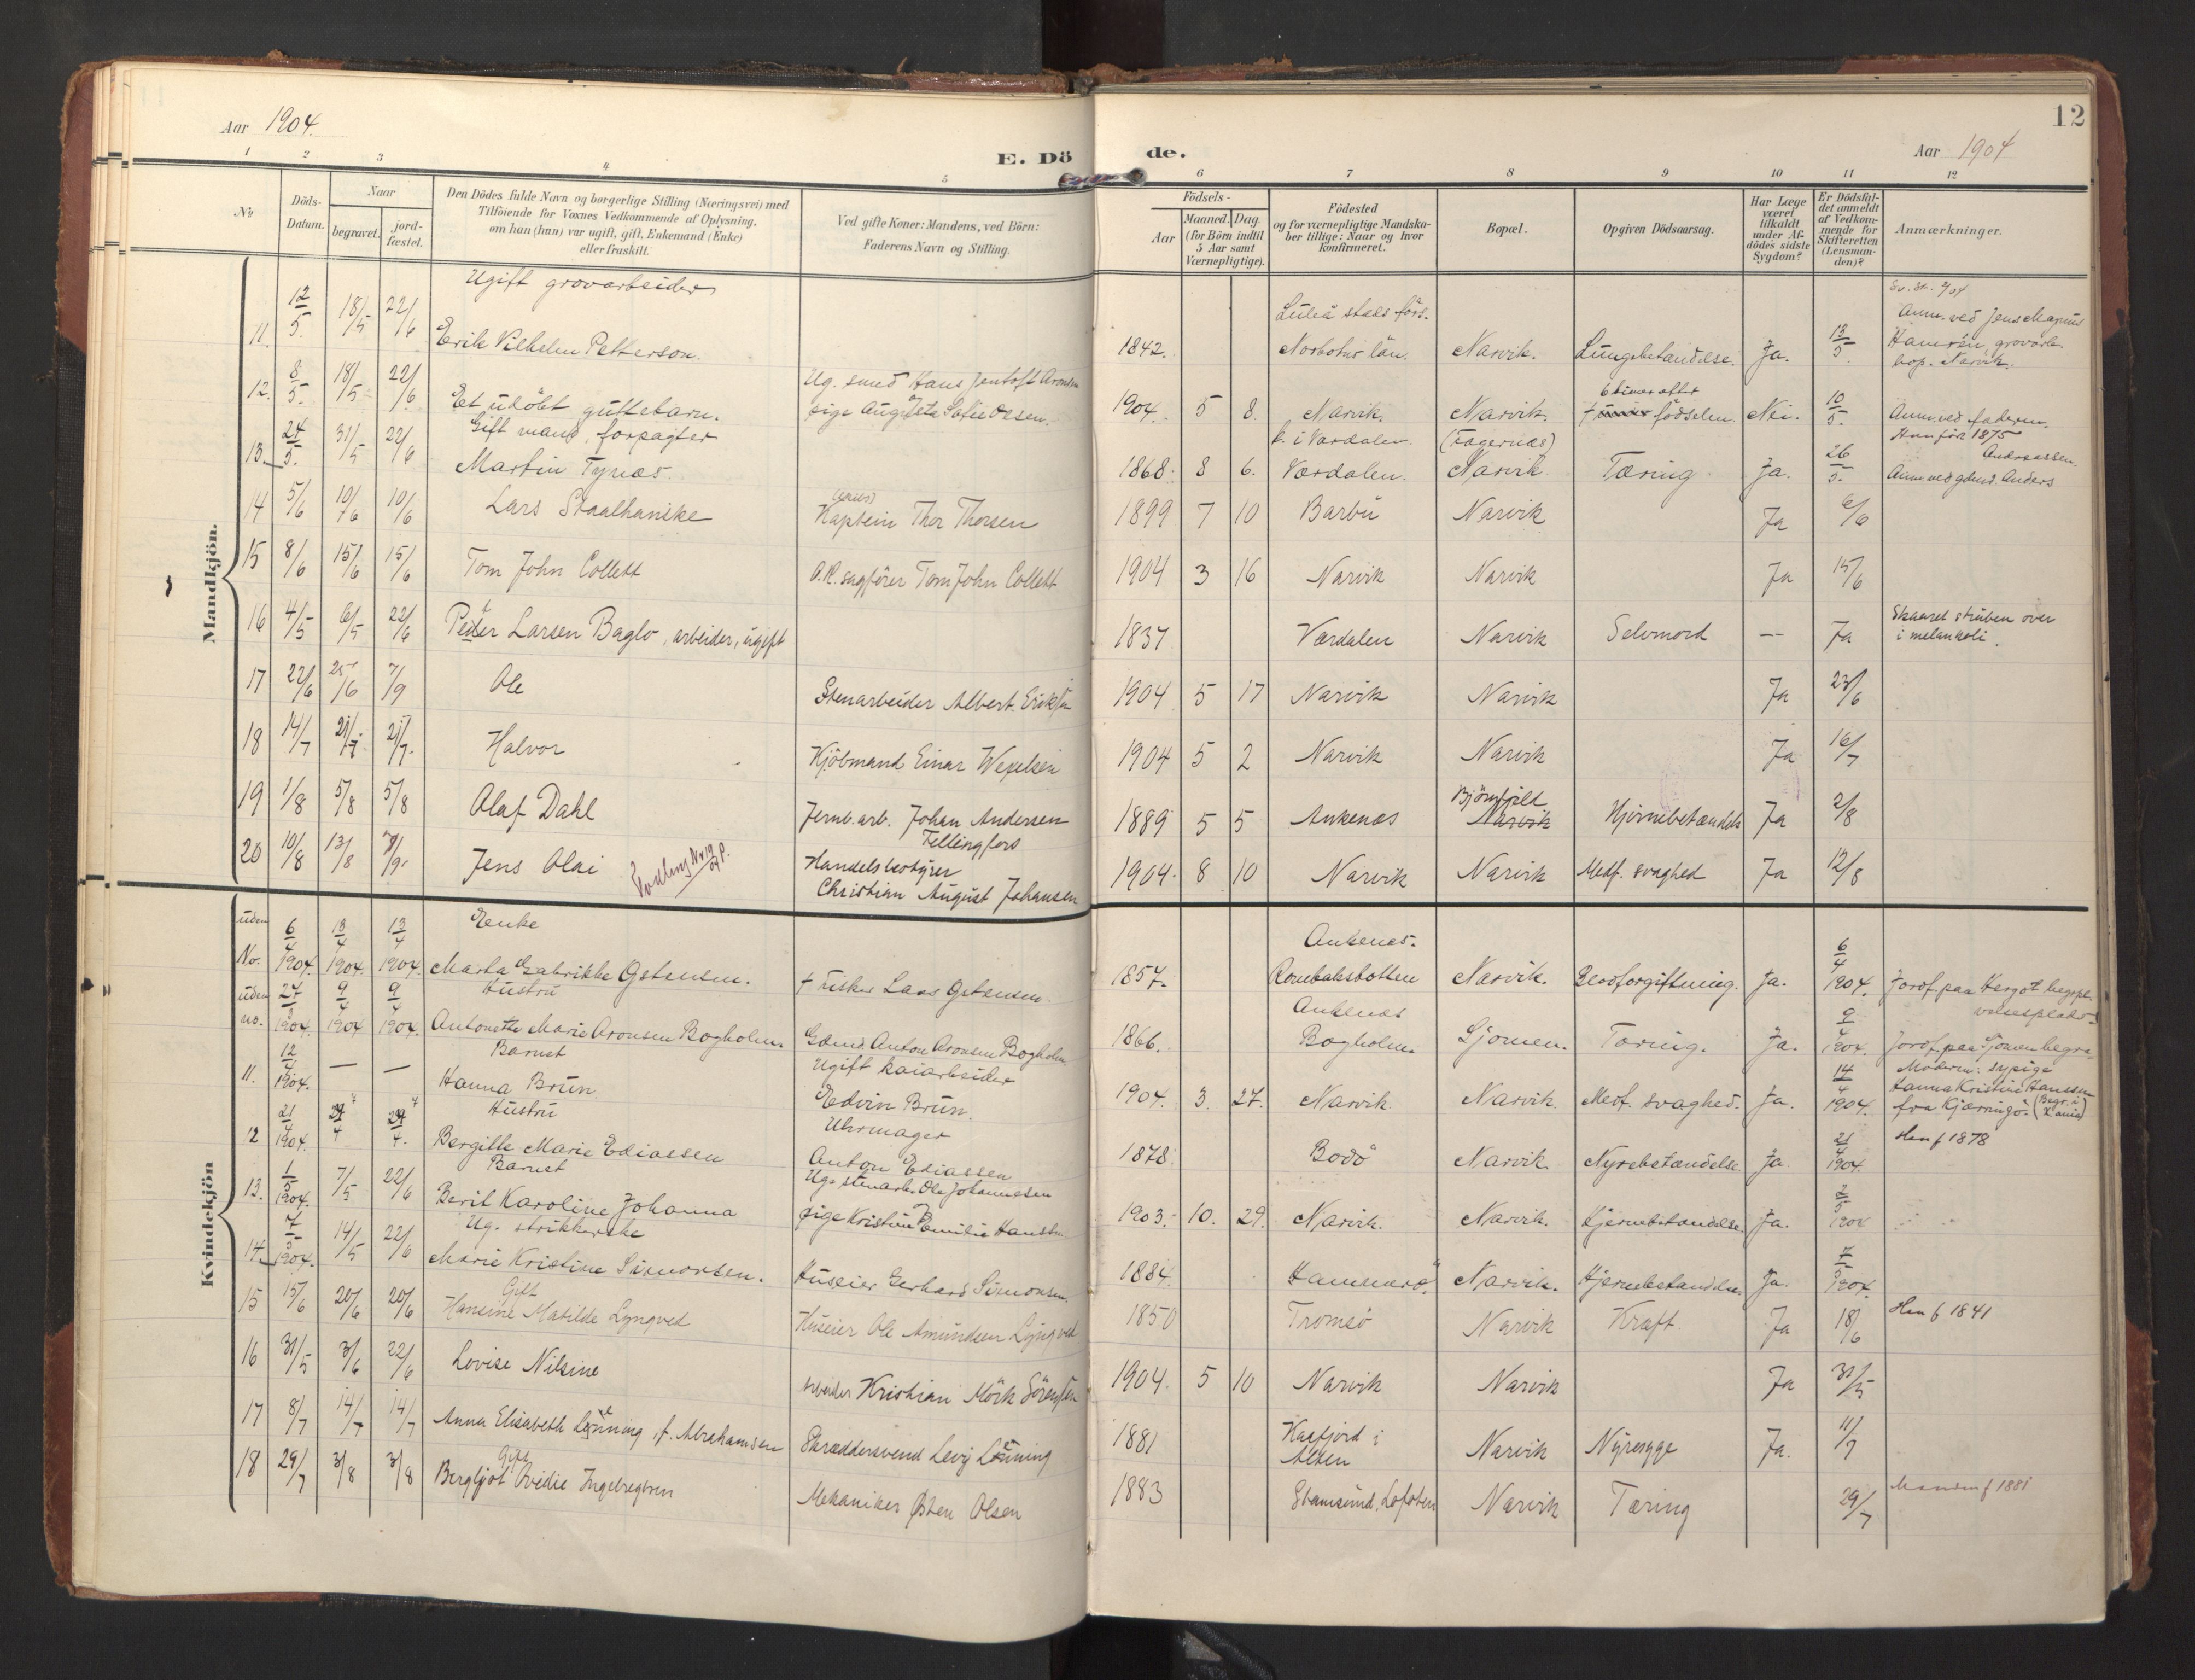 Aar 1904.
E. Dö
de.
Aar 1904
12
1 2 3 4 5 6 7 8 9 10 11 12
No.
Döds-Datum.
Naar
begravet.
jord-fæstet.
Den Dödes fulde Navn og borgerlige Stilling (Næringsvei) med
Tilföiende for Voxnes Vedkommende af Oplysning,
om han (hun) var ugift, gift, Enkemand (Enke)
eller fraskilt.
Ved gifte Koner: Mandens, ved Börn:
Faderens Navn og Stilling.
Födsels-
Aar
Maaned. Dag.
(for Börn indtil
5 Aar samt
Værnepligtige).
Födested
og for værnepligtige Mandska-
ber tillige: Naar og hvor
konfirmeret.
Bopæl.
Opgiven Dödsaarsag.
Har Læge
været
tilkaldt
under Af-
dödes sidste
Sygdom?
Er Dödsfal-
det anmeldt
af Vedkom-
mende for
Skifteretten
(Lensman-
den)?
Anmærkninger.
Mandkjön.
11. 12/5. 18/5 22/6 Ugift grovarbeider
Erik Vilhelm Petterson. 1842. Luleå stads förs.
Norbotns län. Narvik. Lungebetændelse. Ja. 13/5 Anm. ved Jens Magnus
Hansén, grovarb.
bop. Narvik.
12. 8/5. 18/5 22/6 Et udöbt guttebarn. Ug. smed Hans Jentoft Aronsen
pige Augusta Sofie Olsen. 1904. 5 8. Narvik. Narvik. 6 timer efter
födselen. Nei. 10/5. Anm. ved faderen.
13. 24/5. 31/5 22/6 Gift mand, forpagter
Martin Tynæs. 1868. 8 6. k. i Værdalen.
Værdalen. (Fagernæs)
Narvik. Tæring. Ja. 26/5. Hun föd 1875
Anm. ved gdmd. Anders
Andreassen.
14 5/6 10/6 10/6 Lars Staalhanske Kaptein Thor Thorsen 1899 7 10 Barbu Narvik Ja 6/6
15 8/6 15/6 15/6 Tom John Collett O.R. sagförer Tom John Collett 1904 3 16 Narvik Narvik Ja 15/6
16 4/5 6/5 22/6 Peder Larsen Baglo, arbeider, ugift 1837 Værdalen Narvik Selvmord — Ja Skaaret struben over
i melankoli.
17 22/6 25/6 7/9 Ole Stenarbeider Albert Eriksen 1904 5 17 Narvik Narvik Ja 23/6
18 14/7 21/7. 21/7. Halvor Kjöbmand Einar Wexelsen 1904 5 2 Narvik Narvik Ja 16/7
19 1/8 5/8 5/8 Olaf Dahl Jernb.arb. Johan Andersen
Tellingfors 1889 5 5 Ankenæs Björnfjell
Narvik Hjernebetændelse Ja 2/8
20 10/8 13/8 7/9. Jens Olai Handelsbestyrer
Christian August Johansen 1904. 8 10 Narvik Narvik Medf. svaghed Ja 12/8
Kvindekjön
uden No. 6/4 1904. 13/4 1904. 13/4 1904. Enke
Marta Gabrikke Gstensen. † fisker Lars Gstensen. 1857. Ankenes.
Rombaksbotten Narvik. Blodforgiftning. Ja. 6/4 1904. Jordf. paa Hergot begra-
velsesplads.
uden no. 27/3 1904. 9/4 1904 9/4 1904. Hustru
Antonette Marie Aronsen Bogholm. Gdmd. Anton Aronsen Bogholm. 1866. Ankenæs
Bogholm. Sjomen. Tæring. Ja. 9/4 1904. Jordf. paa Sjomen begra-
11. 12/4 1904. — — Barnet
Hanna Brun. Ugift kaiarbeider
Edvin Brun. 1904. 3. 27. Narvik. Narvik. Medf. svaghed. Ja. 14/4 1904. Moderen: sypige
Hanna Kristine Hanssen
fra Kjerringö.
12 21/4 1904. 27/4 27/4. Hustru
Bergitte Marie Ediassen Uhrmager
Anton Ediassen 1878. Bodö Narvik. Nyrebetændelse. Ja. 21/4 1904. Han f 1878
13. 1/5 1904. 7/5 22/6 Barnet
Beril Karoline Johanna Ug. stenarb. Ole Johannesen
pige Kristine Emilie Hanssen. 1903. 10. 29. Narvik. Narvik. Hjernebetændelse. Ja. 2/5 1904
14. 7/5 1904. 14/5 22/6 Ug. strikkerske
Marie Kristine Simonsen. Huseier Gerhard Simonsen. 1884. Hammerö. Narvik. Hjernebetændelse Ja. 7/5 1904.
15 15/6 20/6 20/6 Gift
Hansine Matilde Lyngved Huseier Ole Amundsen Lyngved 1850 Tromsö Narvik Kræft. Ja 18/6 Han f 1841
16 31/5 3/6 22/6 Lovise Nilsine Arbeider Kristian Mörk Sörensen 1904. 5 10 Narvik Narvik Ja 31/5
17 8/7 14/7 14/7 Anna Elisabeth Lönning, f. Abrahamsen Skræddersvend Levy Lönning 1881 Kaafjord i
Alten Narvik Nyresyge Ja. 11/7
18 29/7 3/8 3/8 Gift
Bergljot Ovedie Ingebregtsen Mekaniker Østen Olsen 1883 Stamsund, Lofoten Narvik Tæring 29/7 Manden f 1881